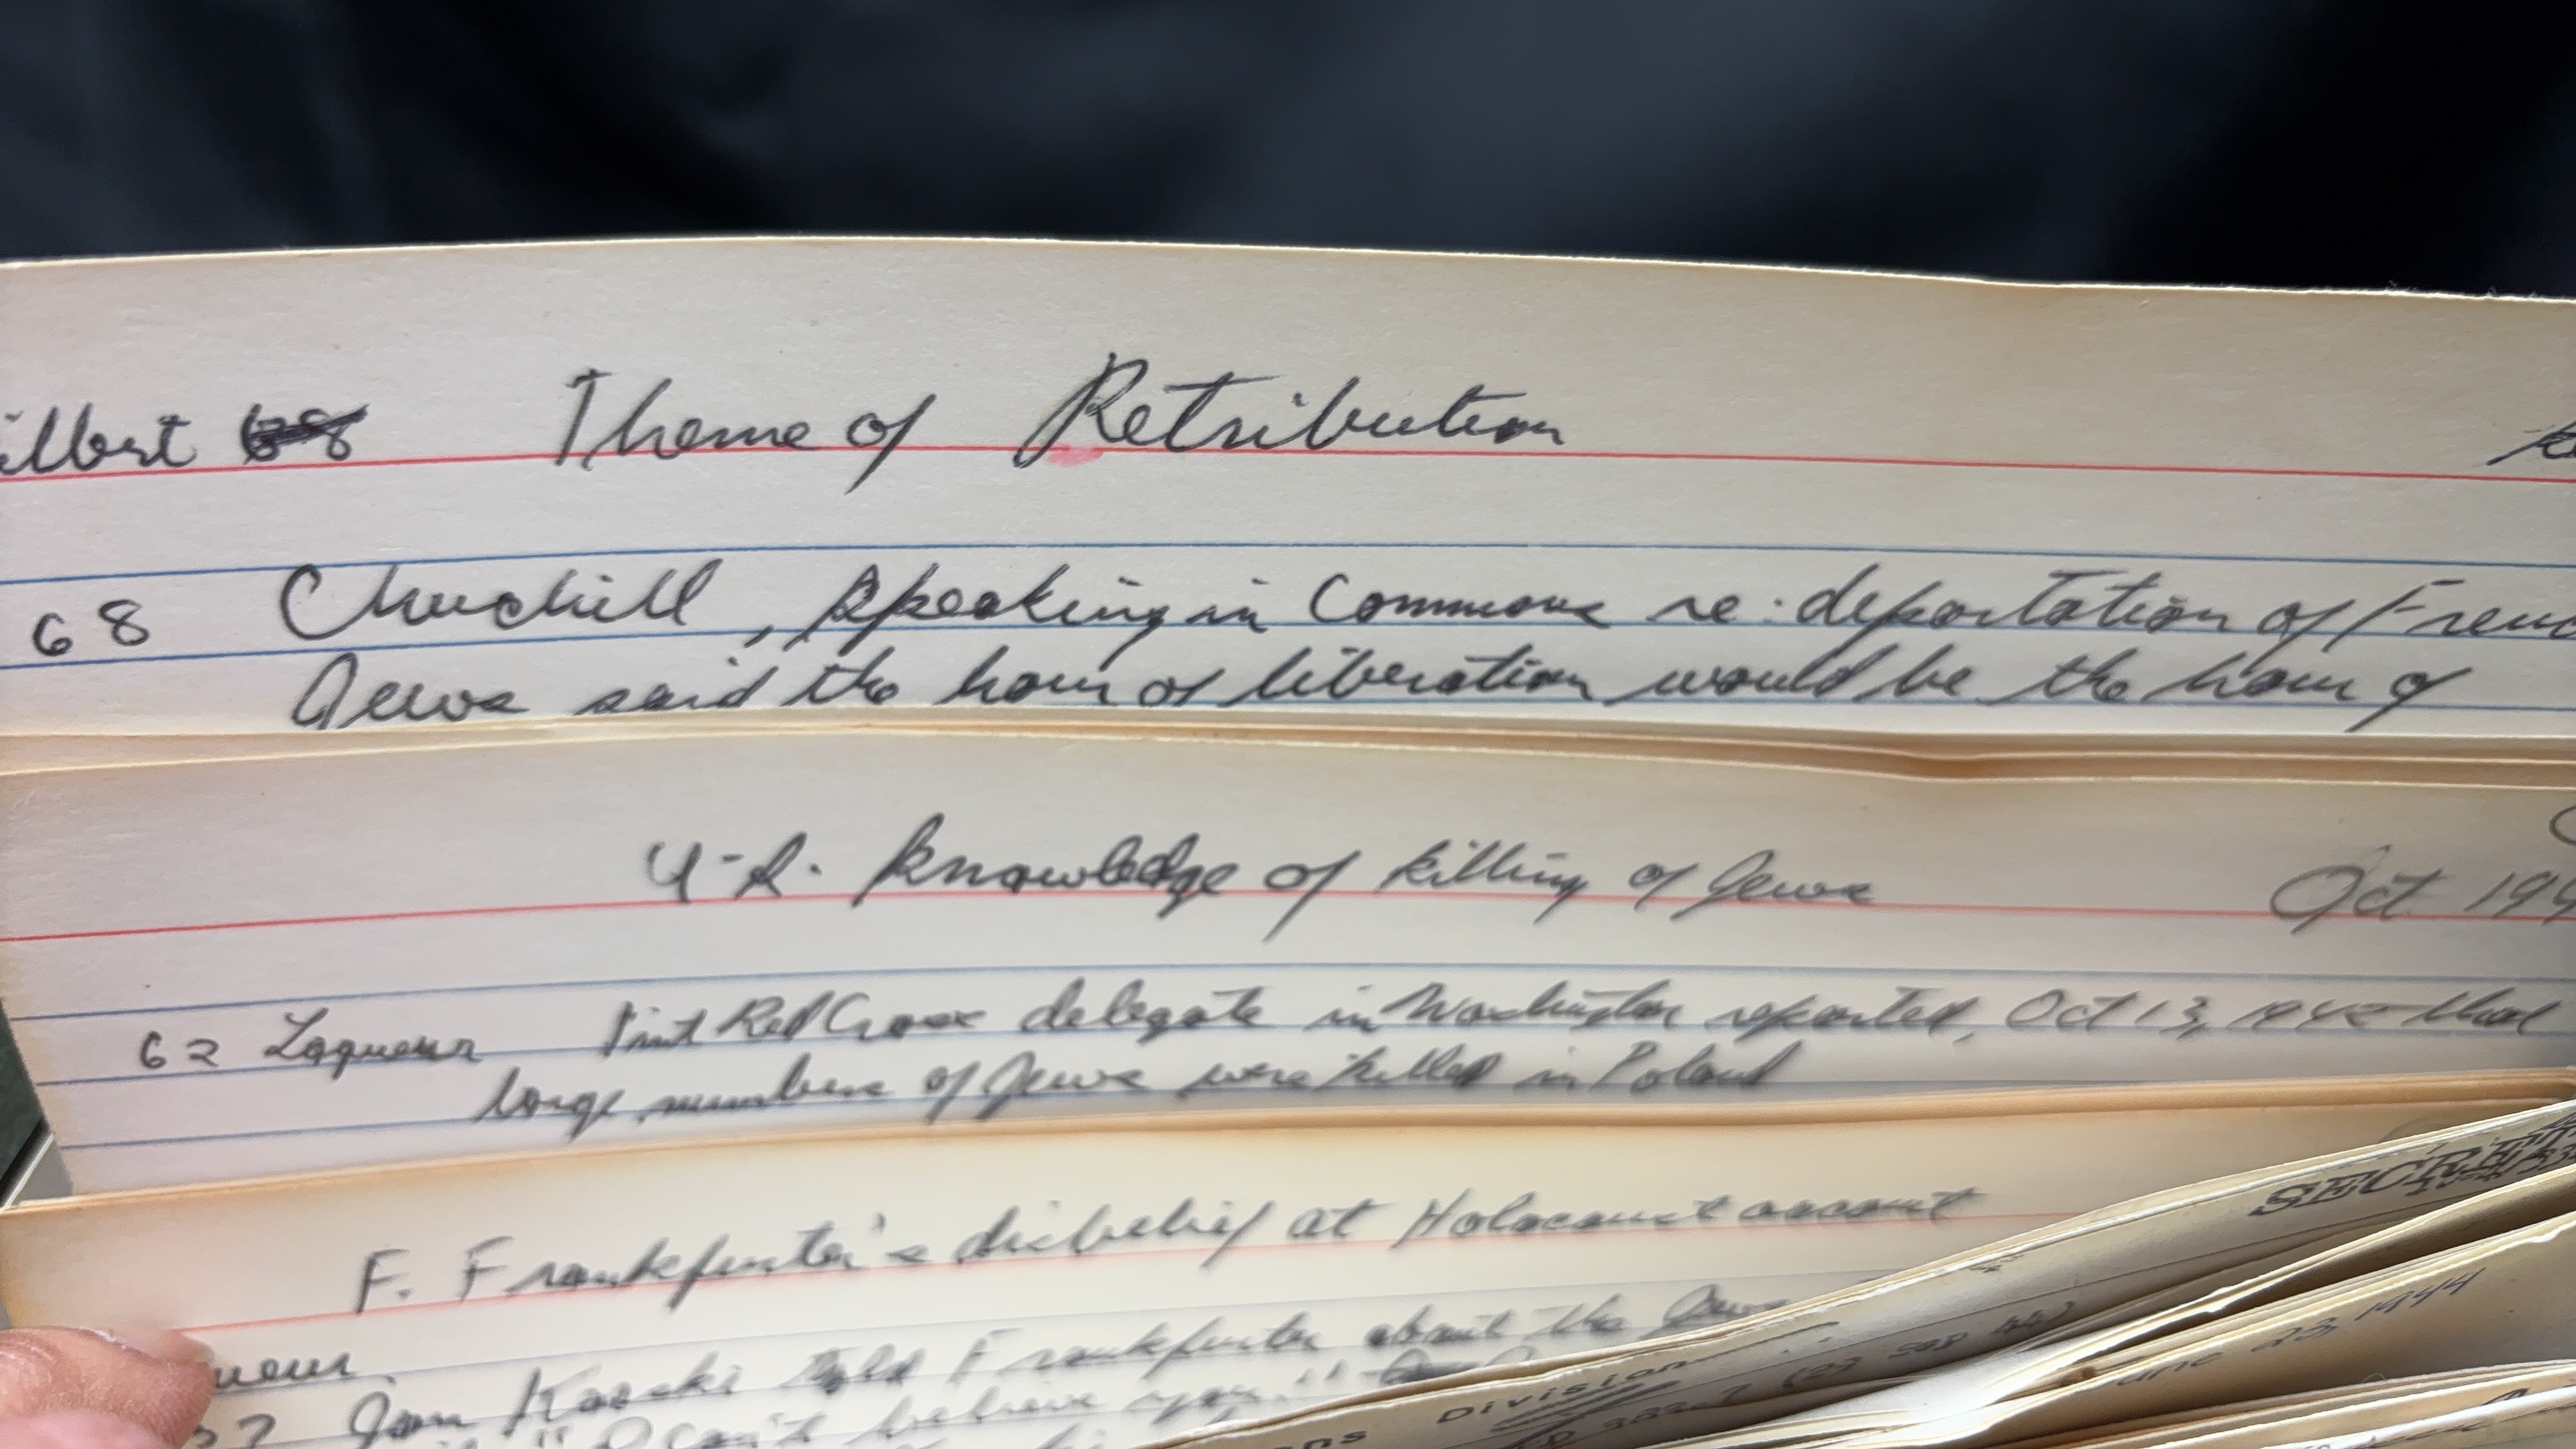 ilbert 68 Theme of Retribution
68 Churchill, speaking in Commons re: deportation of Frenc
Jews said the hour of liberation would be the hour of
U.S. knowledge of killing of Jews Oct 194
62 Laqueur Int Red Cross delegate in Washington reported, Oct 13, 1942 that
large numbers of Jews were killed in Poland
F. Frankfurter's disbelief at Holocaust account
ueur
Jan Karski told Frankfurter about the Jews
can't believe you."
SECRET
ns Division
(23 Sep 44)
June 23, 1944